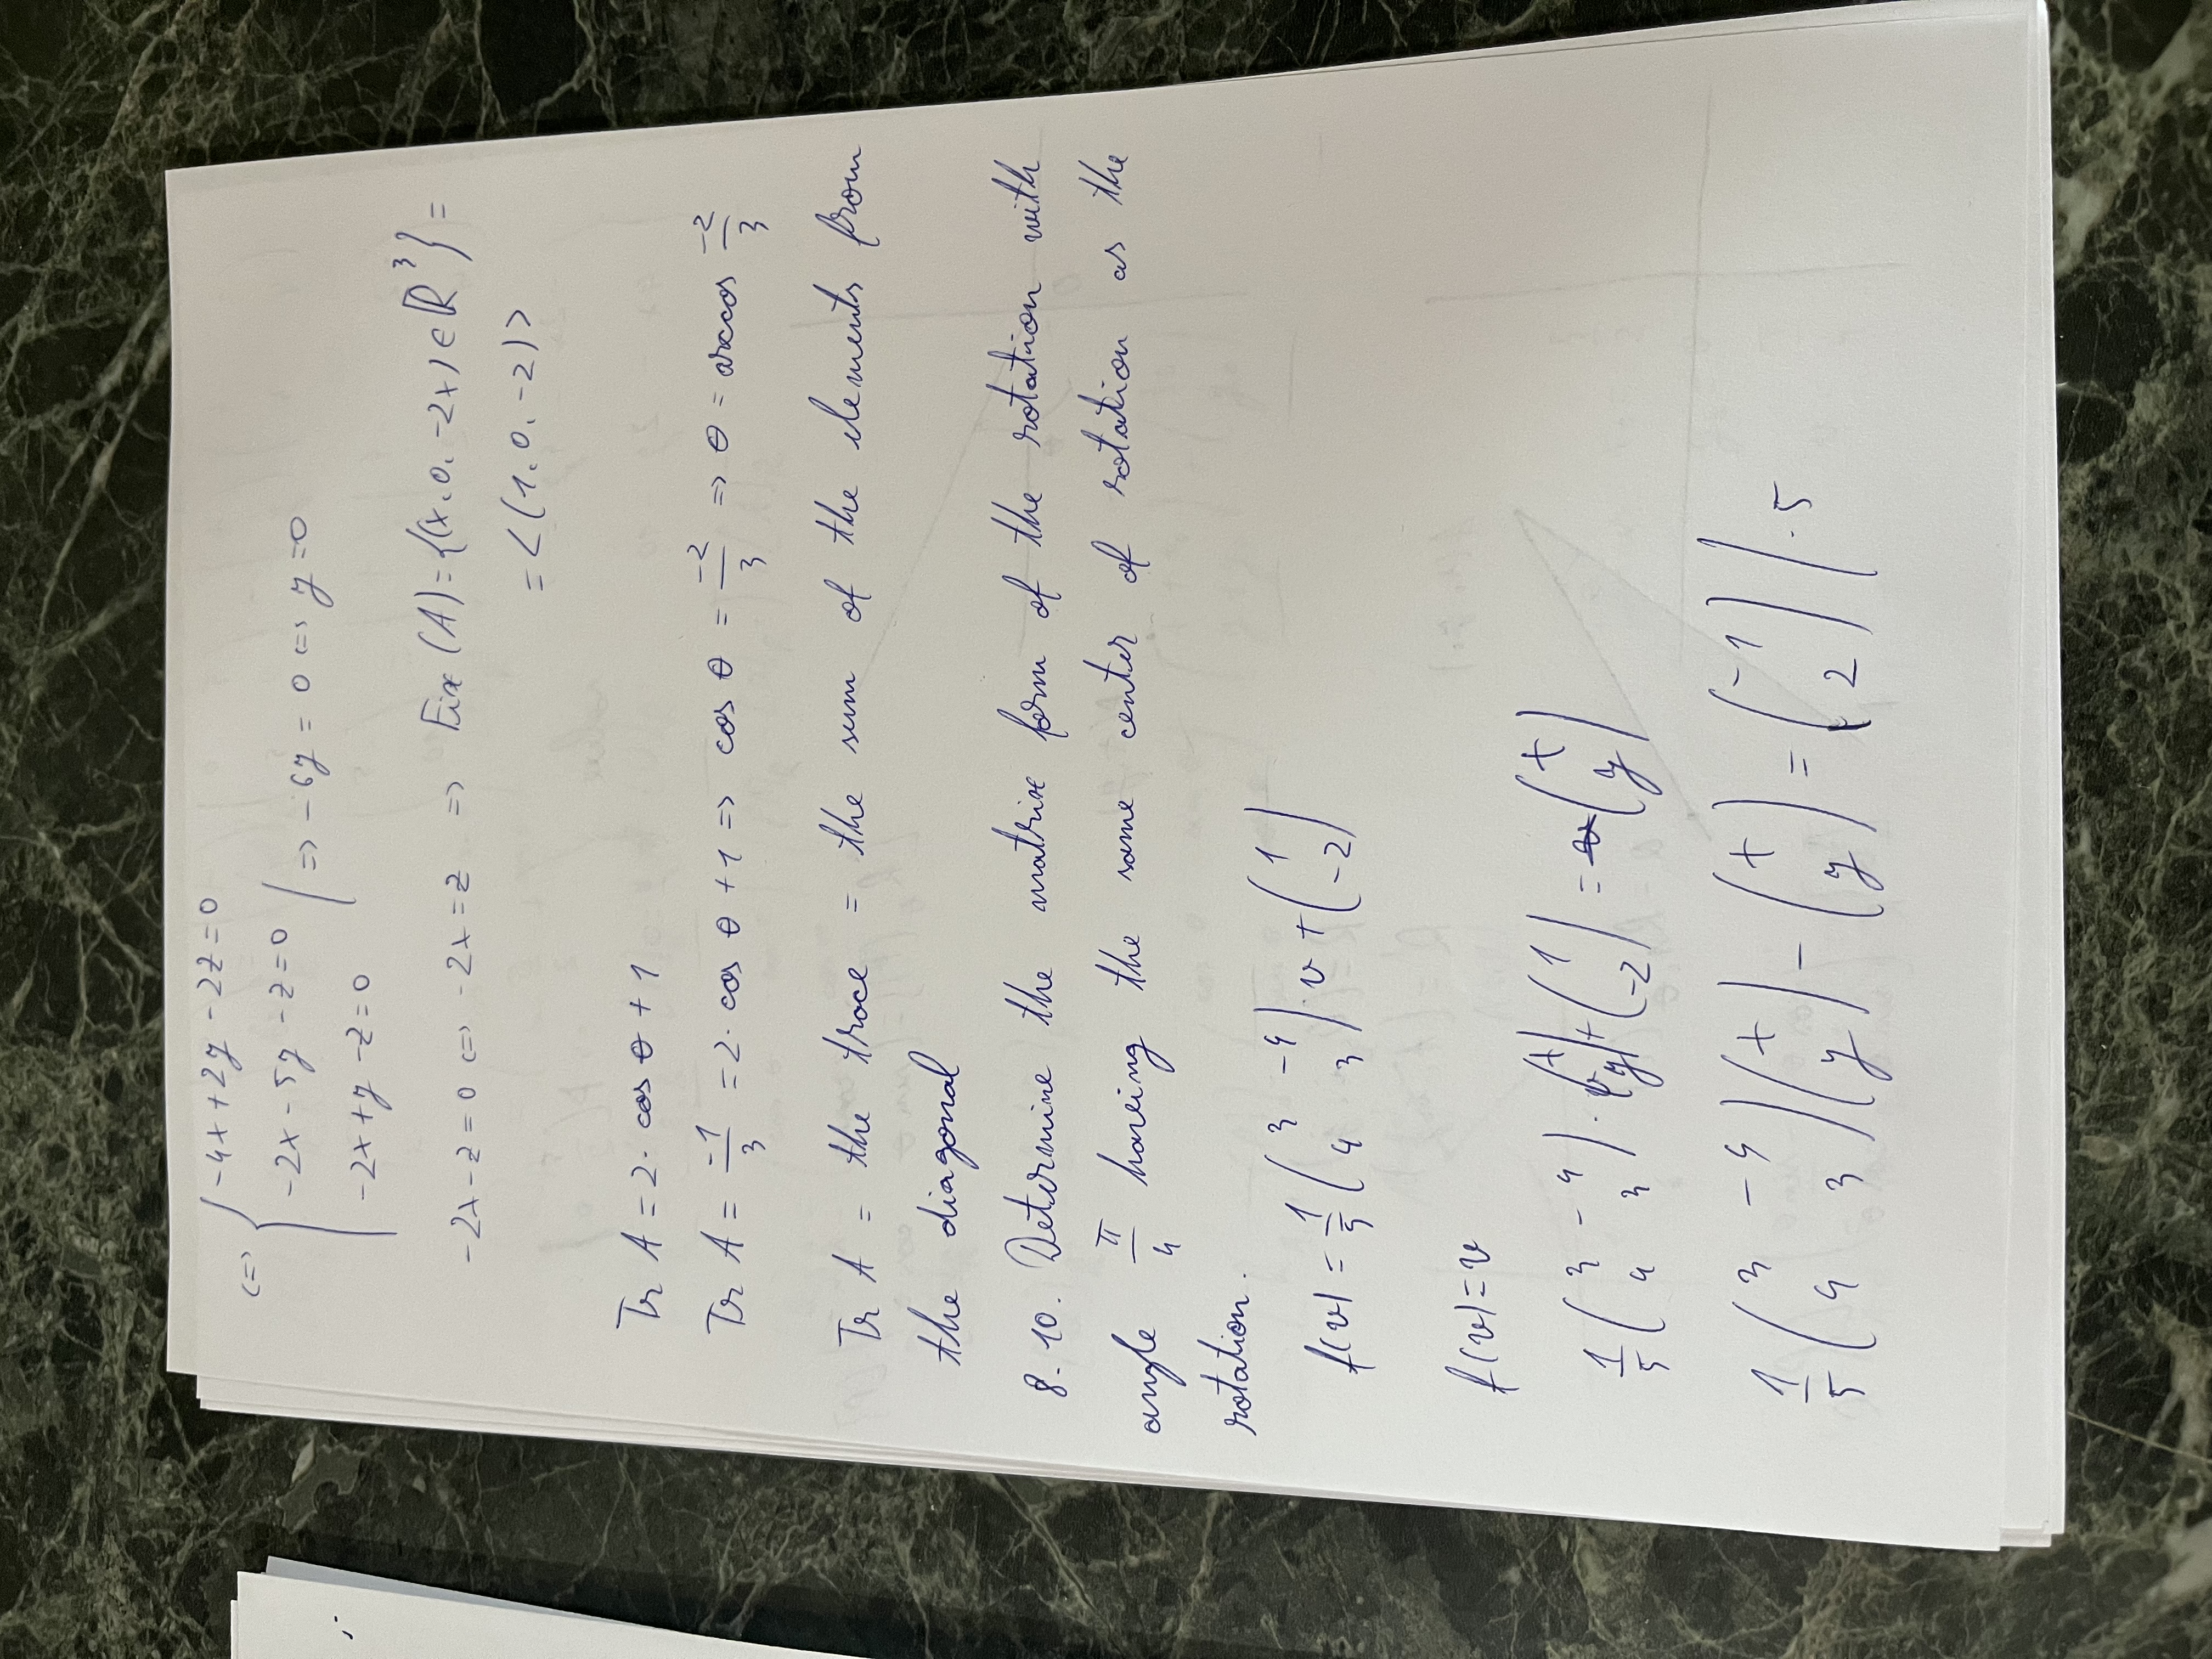 <=> { -4x + 2y - 2z = 0
-2x - 5y - z = 0 | => -6y = 0 <=> y = 0
-2x + y - z = 0
-2x - z = 0 <=> -2x = z => Fix (A) = {(x, 0, -2x) ∈ ℝ³} =
= <(1, 0, -2)>
Tr A = 2 · cos θ + 1
Tr A = -1/3 = 2 · cos θ + 1 => cos θ = -2/3 => θ = arccos -2/3
Tr A = the trace = the sum of the elements from
the diagonal
8.10. Determine the matrix form of the rotation with
angle π/4 having the same center of rotation as the
rotation.
f(v) = 1/5 (3 -4; 4 3) · v + (1; -2)
f(v) = v
1/5 (3 -4; 4 3) · (x; y) + (1; -2) = (x; y)
1/5 (3 -4; 4 3) (x; y) - (x; y) = (-1; 2) | · 5